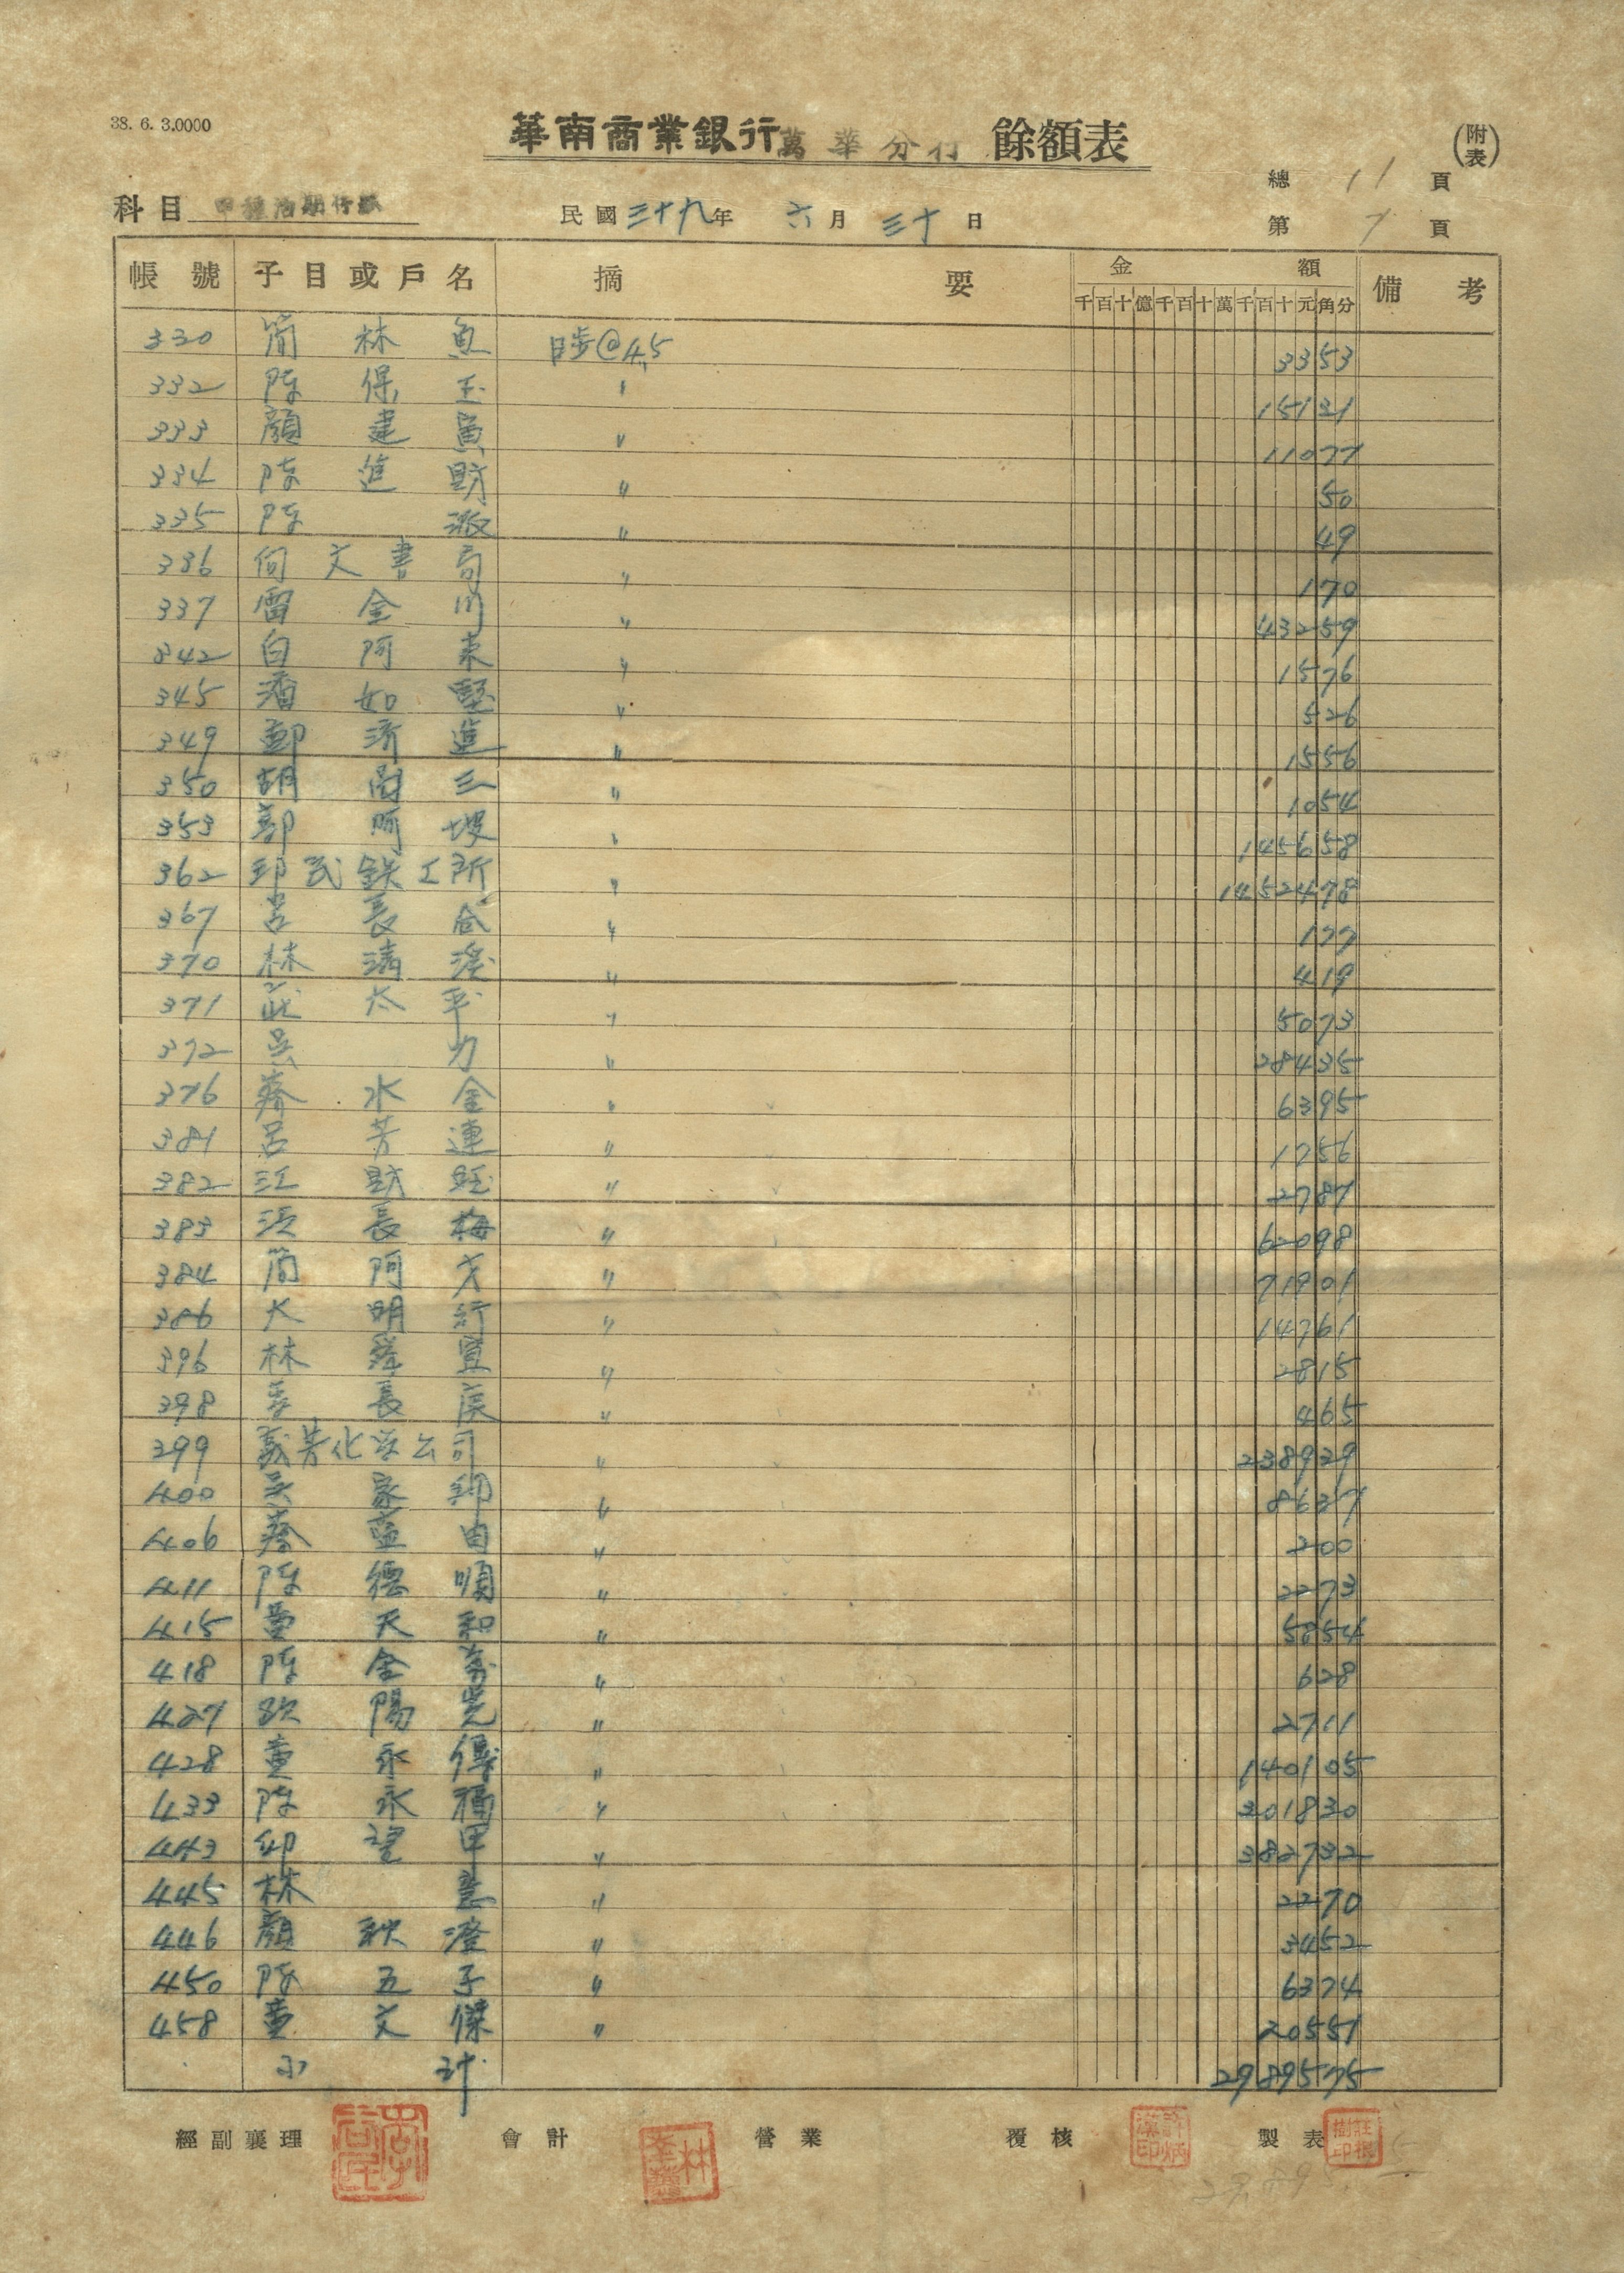 38. 6. 3.0000
華南商業銀行萬華分行 餘額表
(附表)
總 11 頁
科目 甲種活期存款
民國三十九年 六月 三十日
第 7 頁
帳號 子目或戶名 摘要 金額 備考
千百十億千百十萬千百十元角分
330 簡林魚 日步@4.5 3353
332 陳保玉 〃 15131
333 顏建寅 〃 11077
334 陳進財 〃 50
335 陳 〃 49
336 文書局 〃 170
337 雷金川 〃 43259
342 白阿東 〃 1576
345 潘如堅 〃 526
349 鄭濟進 〃 1556
350 胡 三 〃 1054
353 郭阿坡 〃 145658
362 民鉄工所 〃 1452478
367 呂長合 〃 177
370 林清 〃 419
371 太平 〃 5073
372 吳力 〃 28435
376 蔡水金 〃 6395
381 呂芳連 〃 1756
382 江財旺 〃 2787
383 長梅 〃 62098
384 簡阿才 〃 71901
386 大明行 〃 14761
396 林 〃 2815
398 李長庚 〃 465
399 義芳化学公司 〃 238929
400 吳家 〃 8637
406 蔡 由 〃 200
411 陳德順 〃 2273
415 童天和 〃 5854
418 陳金 〃 628
427 欧陽光 〃 2711
428 童永得 〃 140105
433 陳永福 〃 301830
443 邱望甲 〃 382732
445 林 意 〃 2270
446 顏秋澄 〃 3452
450 陳五子 〃 6374
458 童文傑 〃 20551
小計 2989575
經副襄理 會計 營業 覆核 製表